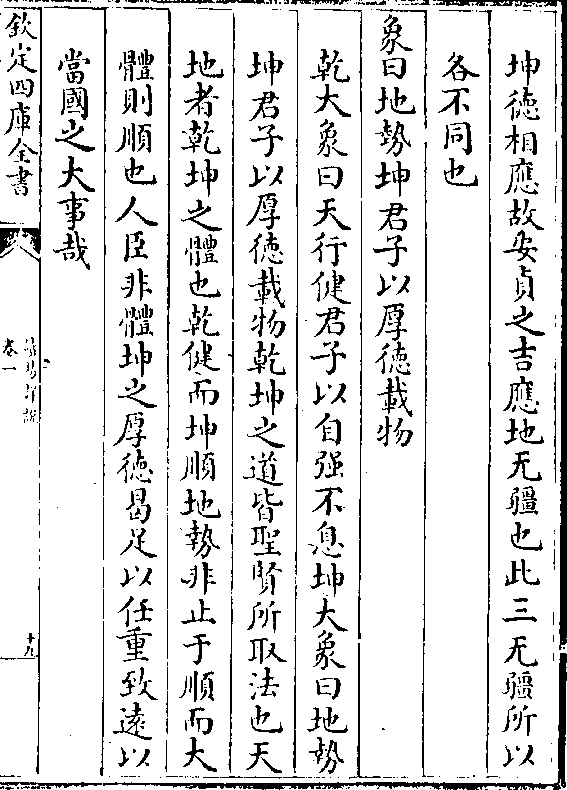 坤徳相應故安貞之吉應地无疆也此三无疆所以
各不同也
象曰地勢坤君子以厚徳載物
乾大象曰天行健君子以自强不息坤大象曰地勢
坤君子以厚徳載物乾坤之道皆聖賢所取法也天
地者乾坤之體也乾健而坤順地勢非止于順而大
體則順也人臣非體坤之厚徳曷足以任重致遠以
當國之大事哉
欽定四庫全書
卷一
十九